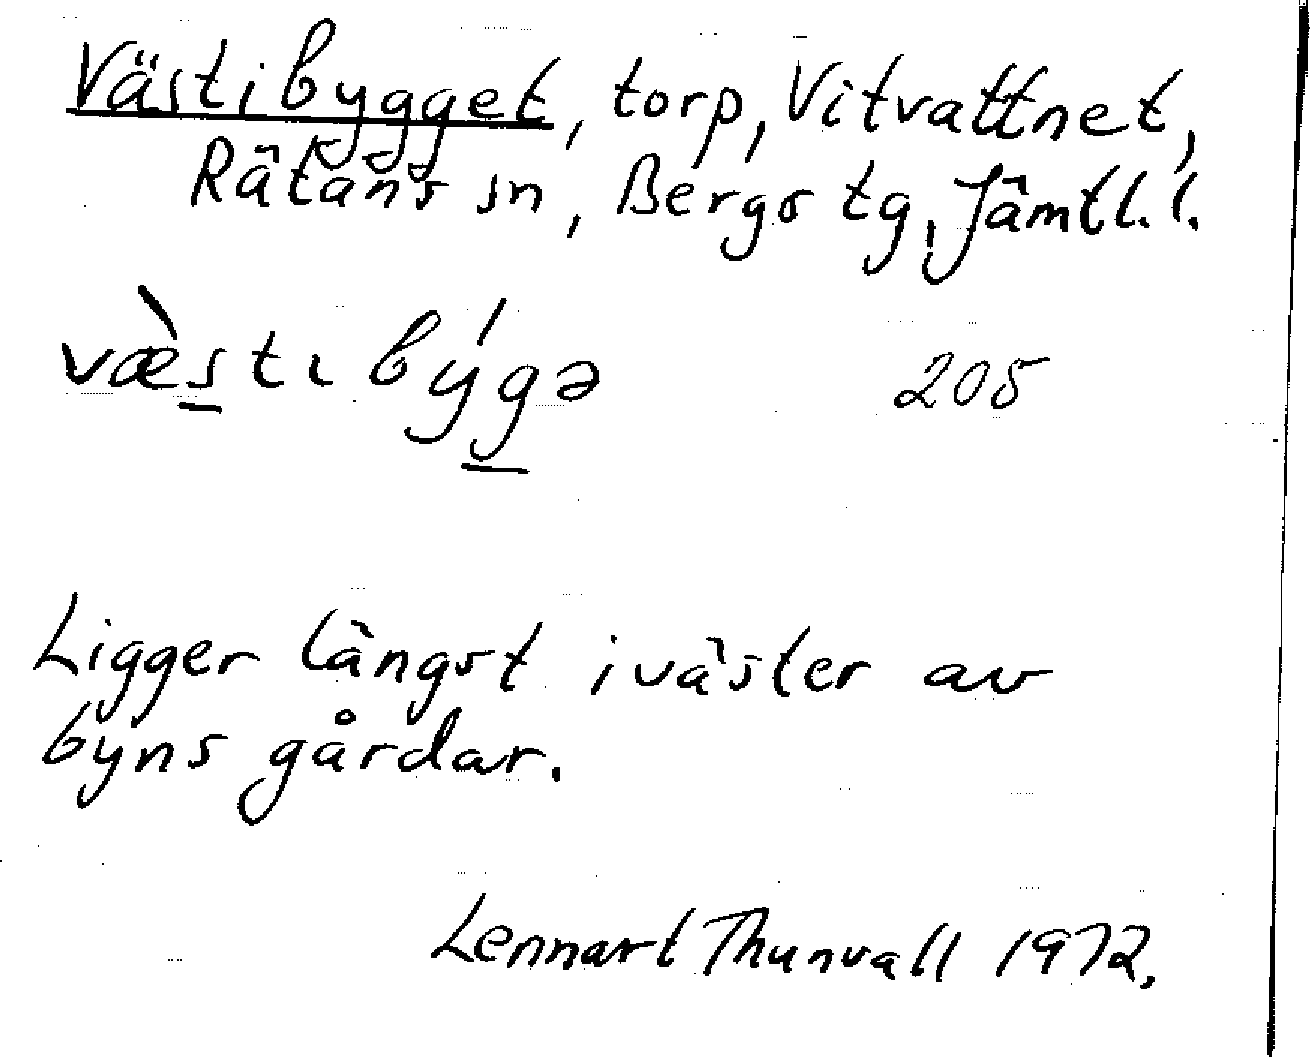 Västibygget, torp, Vitvattnet,
Rätans sn, Bergs tg, Jämtl. l.
væ̀stıbýgə 205
Ligger längst i väster av
byns gårdar.
Lennart Thunvall 1972.